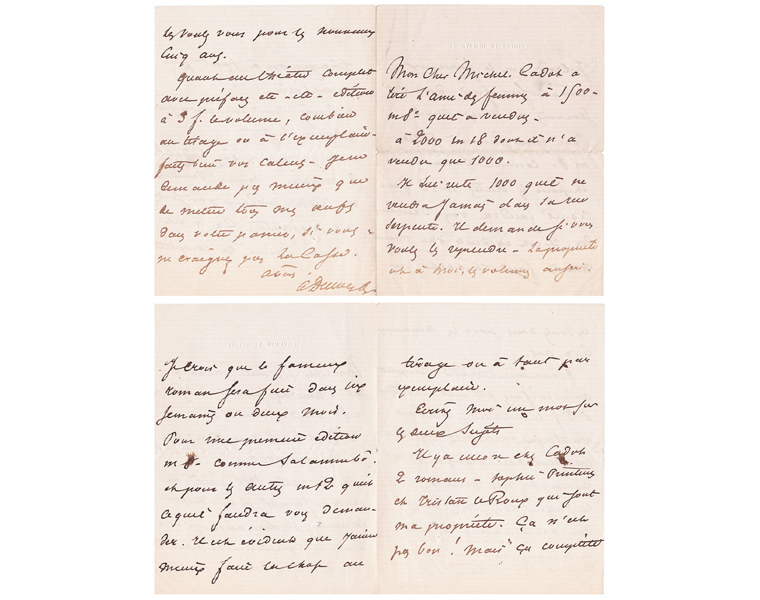 Mon Cher Michel. Cadot a
tiré l'ami des femmes à 1500 -
in 8° qu'il a vendu -
à 2000 in 18 dont il n'a
vendu que 1000.
Il lui reste 1000 qu'il ne
vendra jamais dans sa rue
serpente. Il demande si vous
voulez les reprendre - La propriété
est à moi, les volumes aussi.
Je crois que le fameux
roman sera fini dans six
semaines ou deux mois.
Pour une première édition
in 8° comme Salammbô.
et pour les autres in 12 qu'est
ce qu'il faudra vous deman-
der. Il est évident que j'aime
mieux faire la chose au
tirage ou à tant par
exemplaire.
Ecrivez moi un mot sur
les deux sujets
Il y a encore chez Cadot
2 romans - Sophie Printems
et Tristan le Roux qui sont
ma propriété. Ça n'est
pas bon ! Mais ça complète
les voulez vous pour les nouveaux
cinq ans.
Quant au théâtre complet
avec préfaces etc - etc - édition
à 3 f. le volume, combien
au tirage ou à l'exemplaire -
faites bien vos calculs - Je ne
demande pas mieux que
de mettre tous mes œufs
dans votre panier, si vous
ne craignez pas la casse.